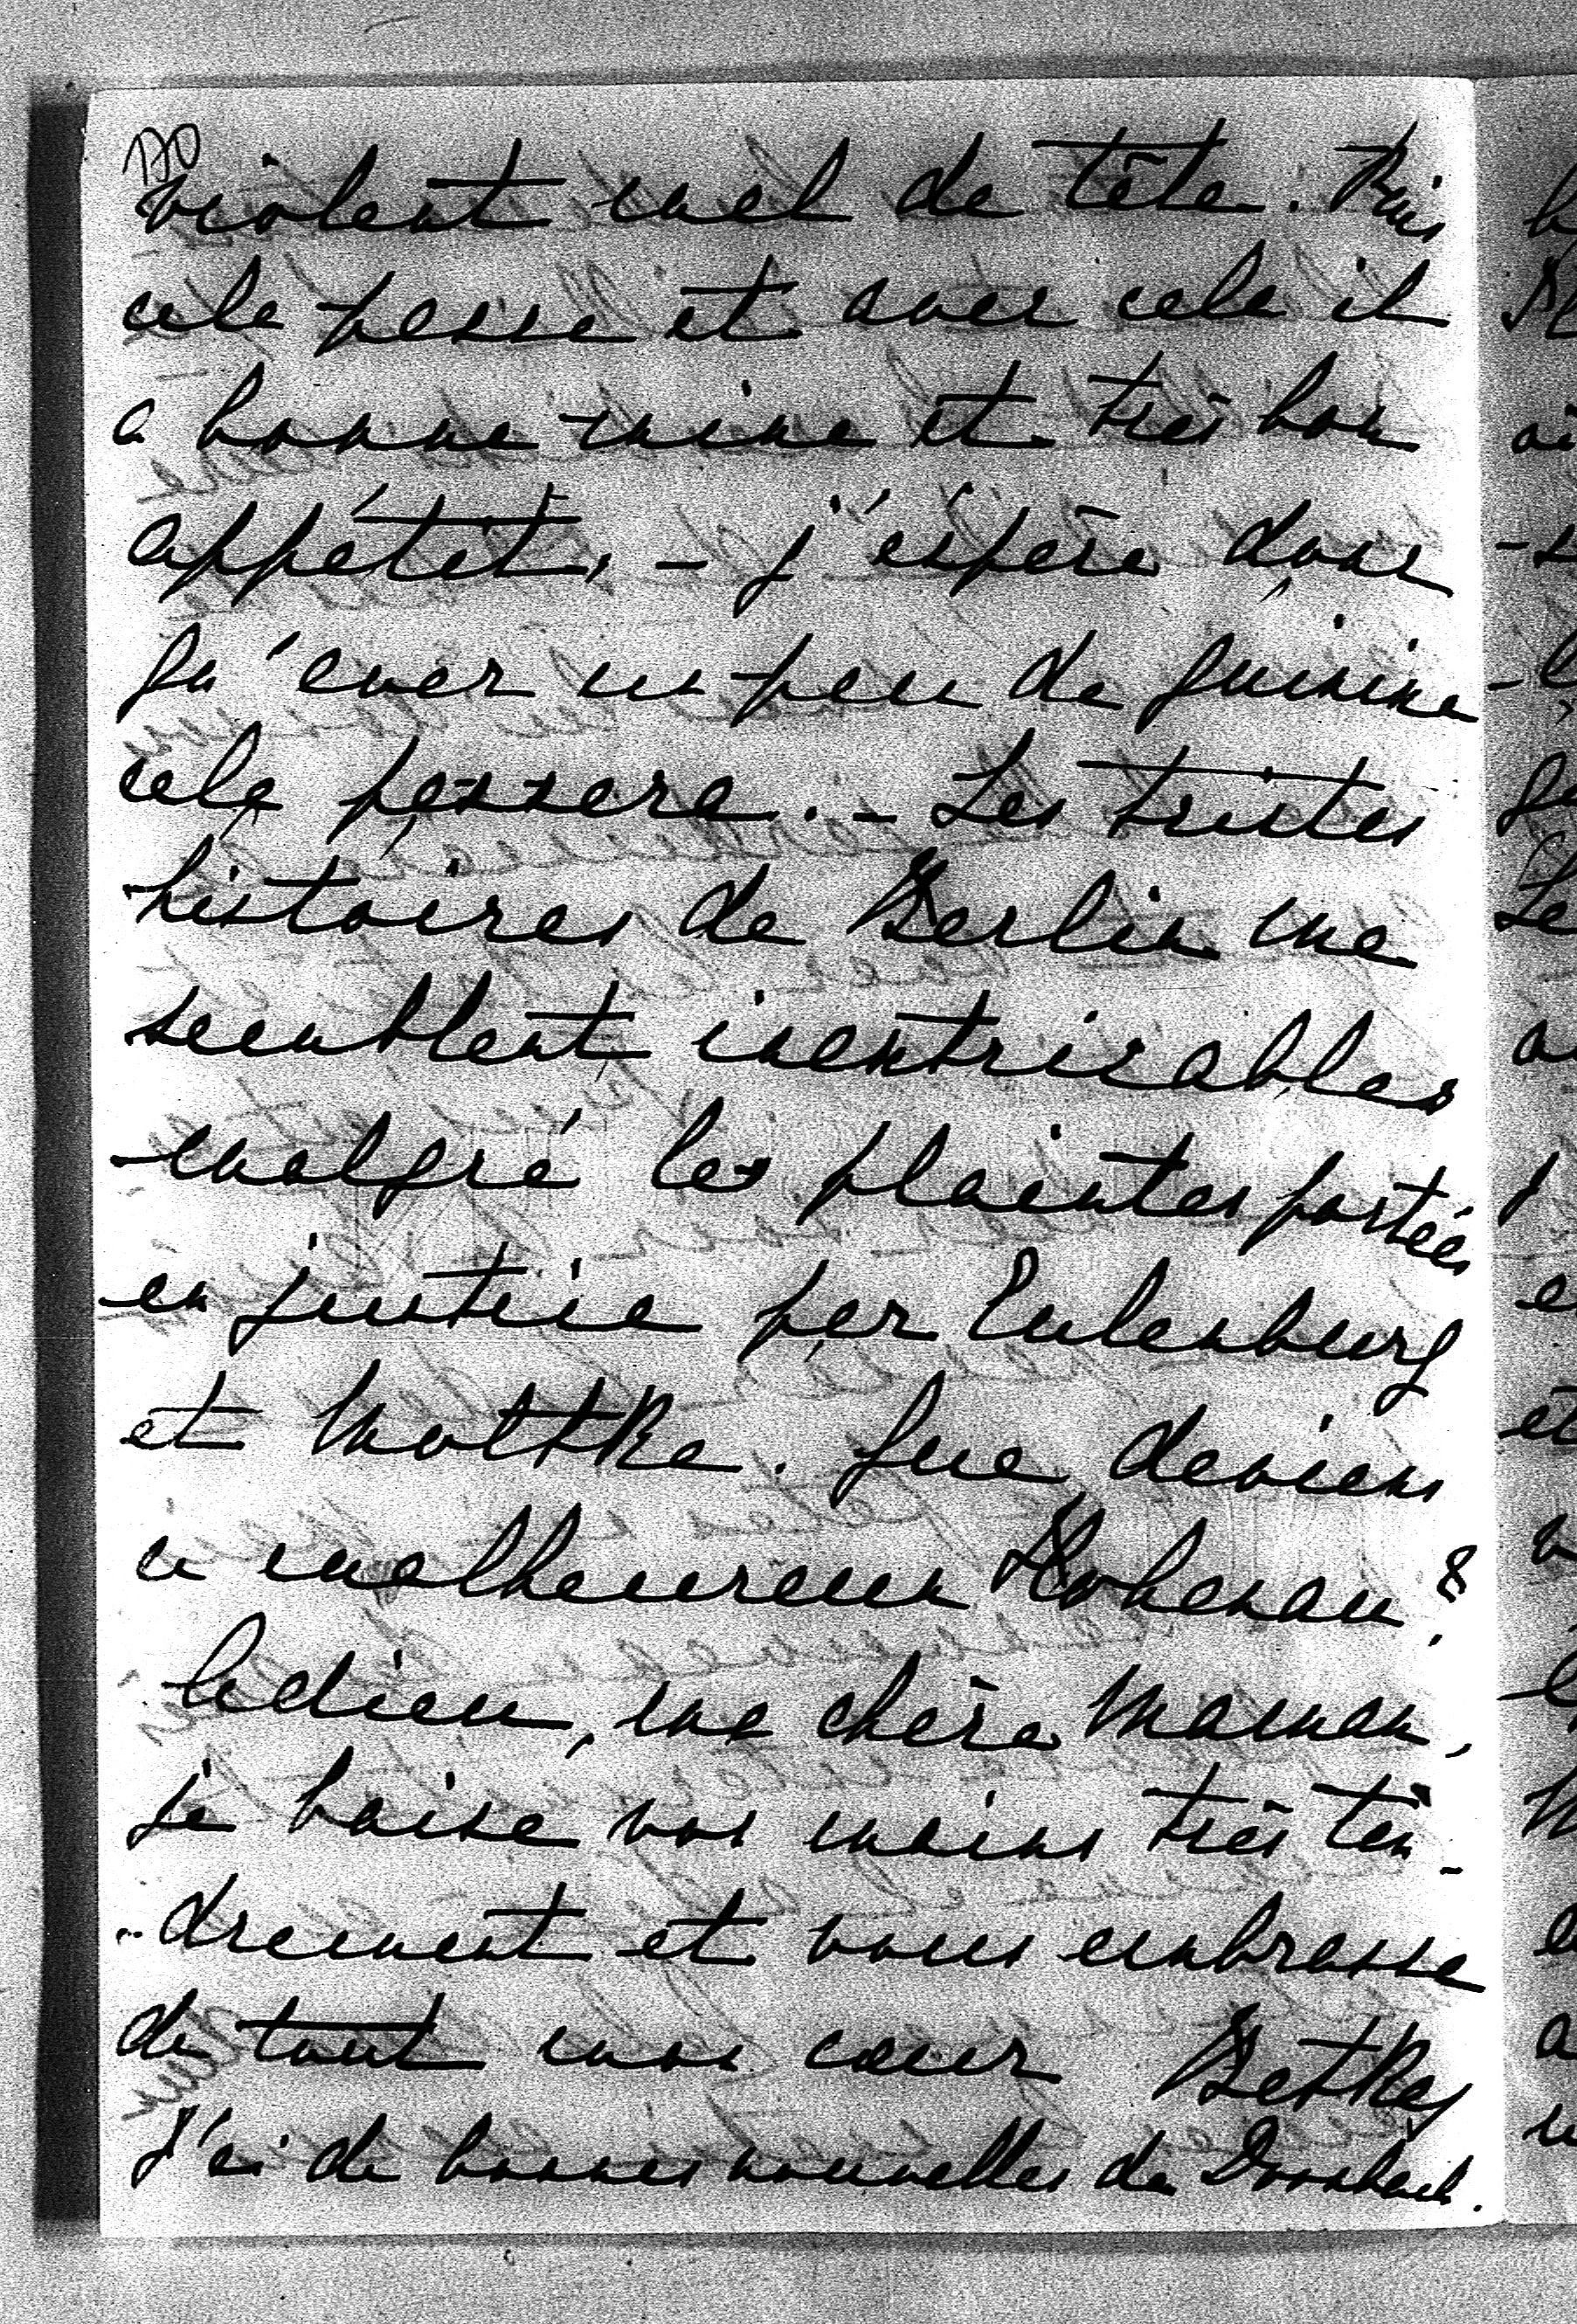 170
violent mal de tête. Puis
cela passe et avec cela il
a bonne mine et très bon
appétit, - j'espère donc
qu'avec un peu de quinine
cela passera. - Les tristes
histoires de Berlin me
semblent inextricables
malgré les plaintes portées
en justice par Eulenburg
et Moltke. Que devient
ce malheureux Hohenau?
Adieu, ma chère Maman,
je baise vos mains très ten-
-drement et vous embrasse
de tout mon cœur Betka
J'ai de bonnes nouvelles de